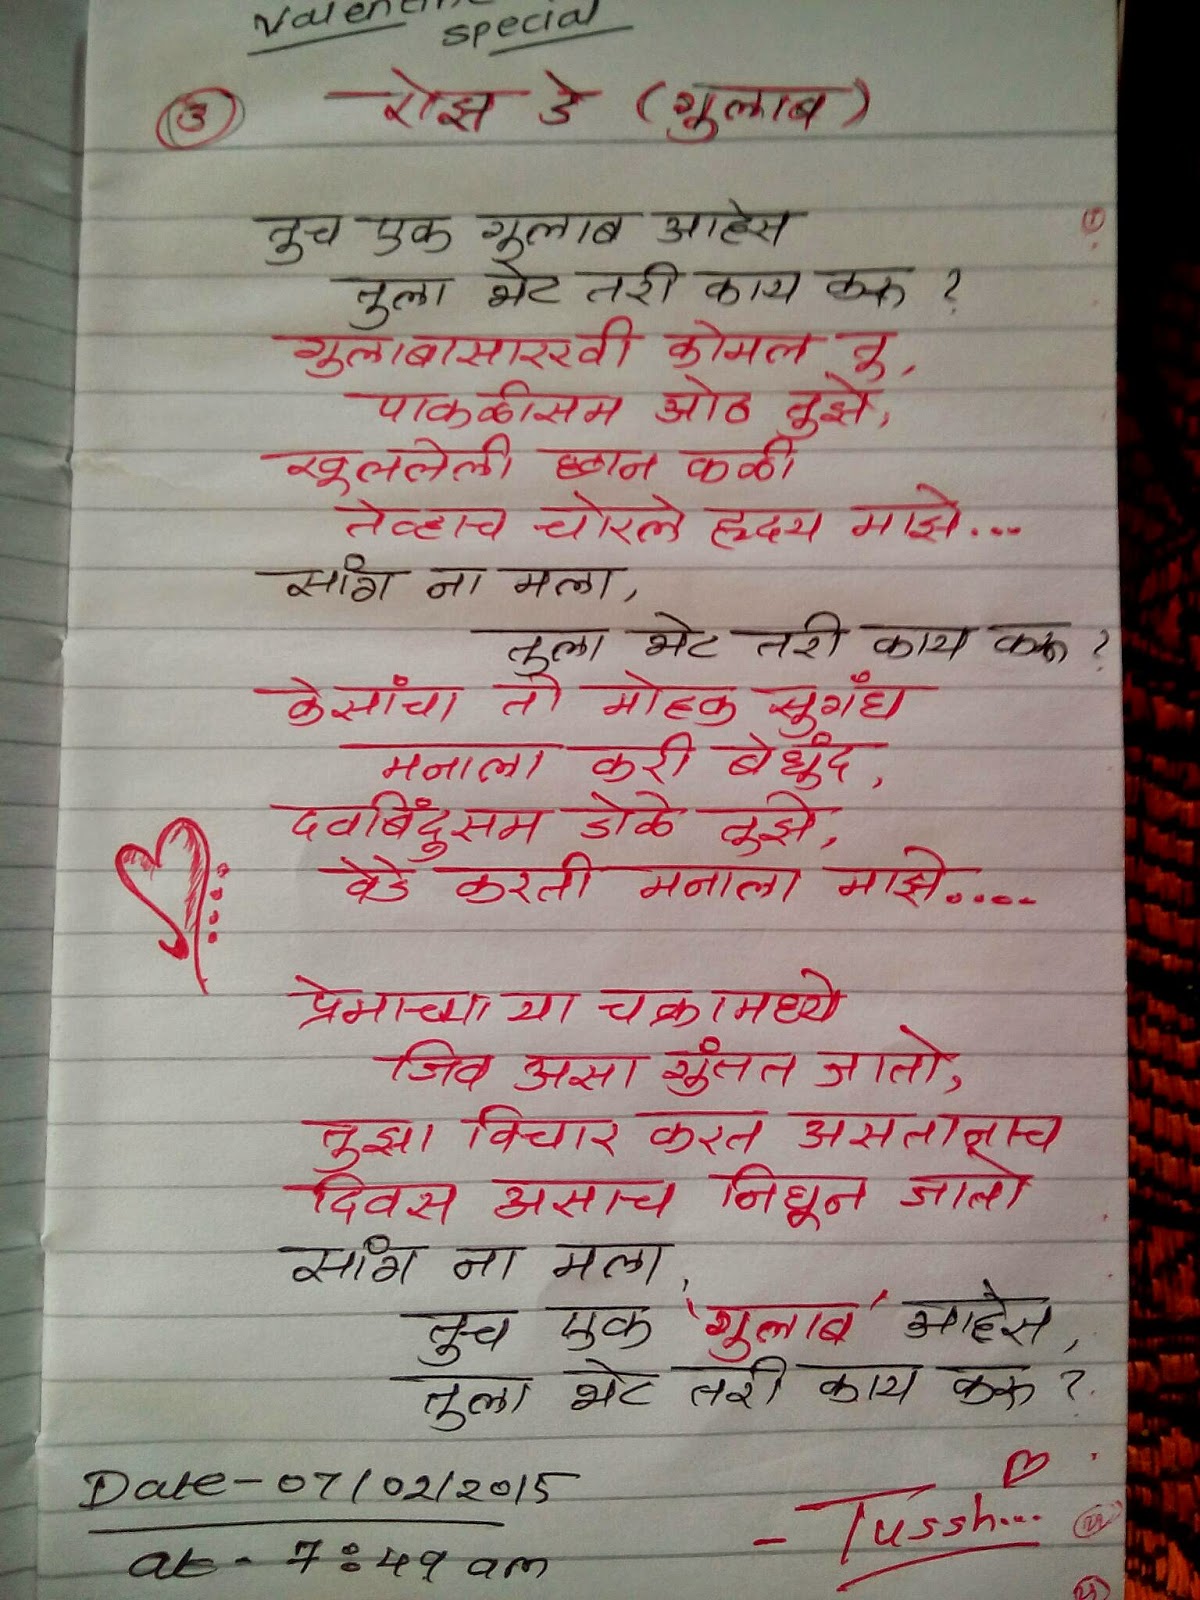 special
③ रोझ डे (गुलाब)
तुच एक गुलाब आहेस
तुला भेट तरी काय करू ?
गुलाबासारखी कोमल तु,
पाकळीसम ओठ तुझे,
खूललेली छान कळी
तेव्हाच चोरले हृदय माझे...
सांग ना मला,
तुला भेट तरी काय करू ?
केसांचा तो मोहक सुगंध
मनाला करी बेधुंद,
दवबिंदुसम डोळे तुझे,
वेडे करती मनाला माझे.....
प्रेमाच्या या चक्रामध्ये
जिव असा गुंतत जातो,
तुझा विचार करत असतानाच
दिवस असाच निघून जातो
सांग ना मला,
तुच एक 'गुलाब' आहेस,
तुला भेट तरी काय करू ?
Date - 07/02/2015
at - 7:49 am
- Tussh...